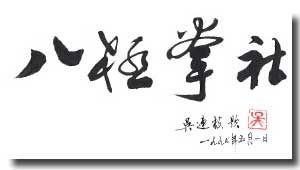 八極拳社
吳連枝题 吴
一九九七年五月一日